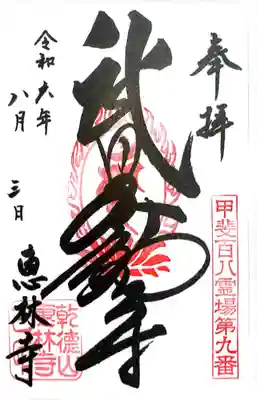 奉拝
甲斐百八霊場第九番
武田不動尊
令和六年
八月
三日
恵林寺
乾德山
恵林寺